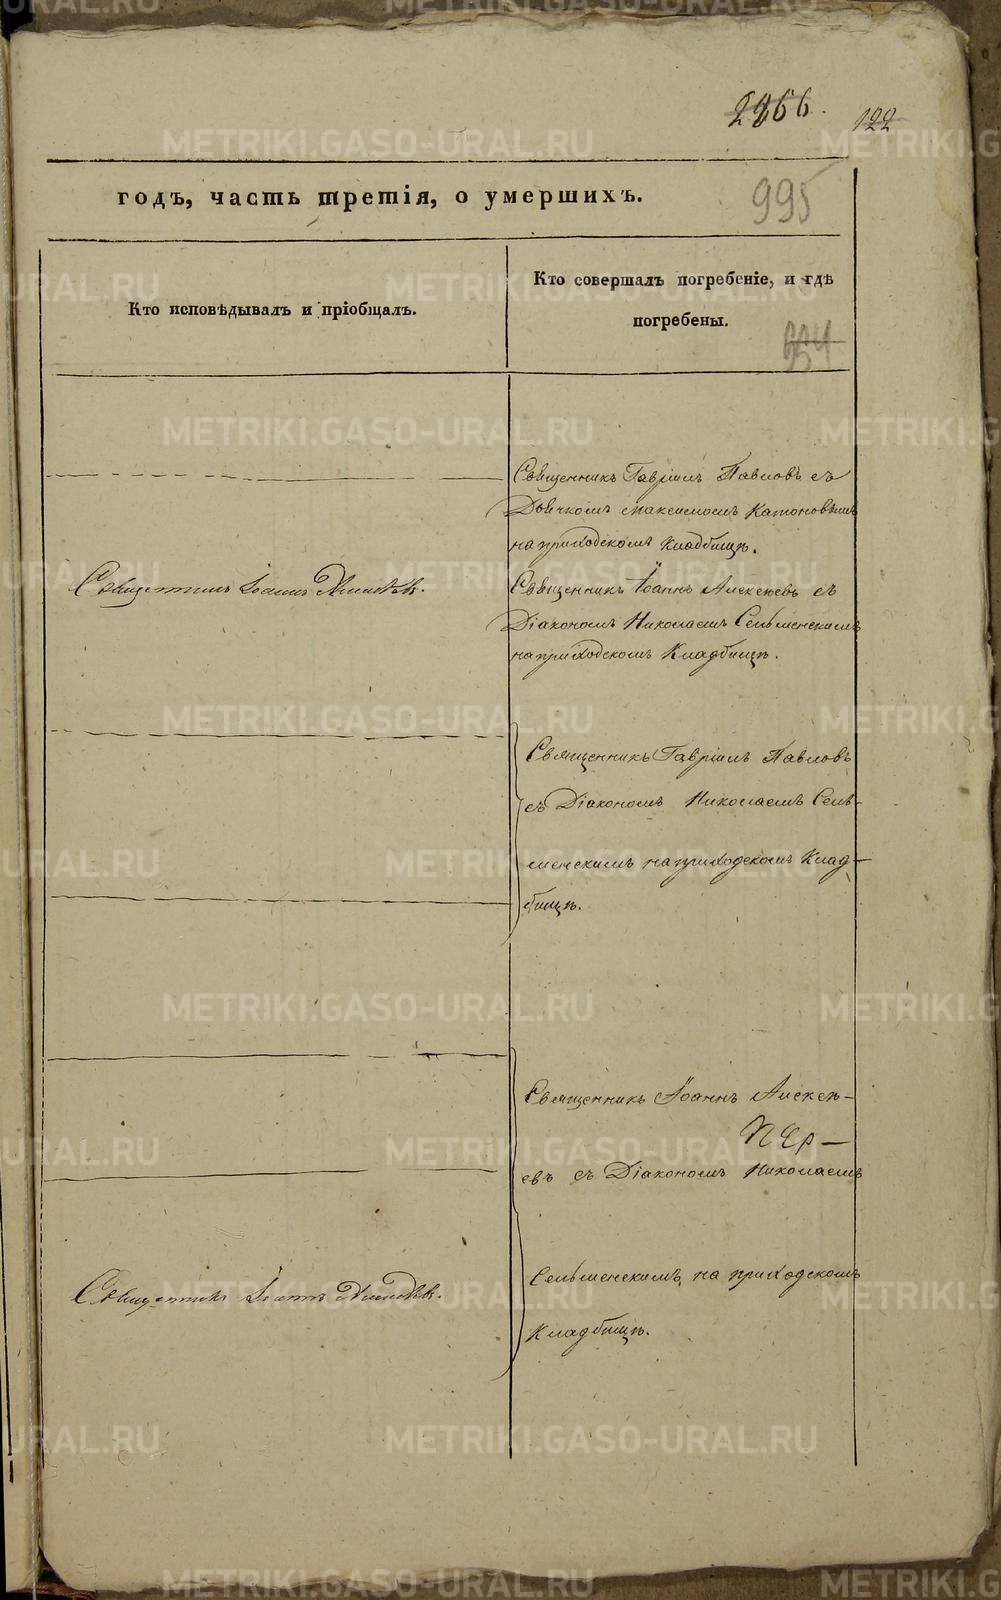 2866.
122
годъ, часть третія, о умершихъ.
995
Кто исповѣдывалъ и пріобщалъ.
Кто совершалъ погребеніе, и гдѣ
погребены.
Священникъ Гавріилъ Павловъ съ
Дьячкомъ Максимомъ Катоновымъ
на приходскомъ кладбищѣ.
Священникъ Іоаннъ
Священникъ Іоаннъ Алексѣевъ съ
Діакономъ Николаемъ Сельменскимъ
на приходскомъ Кладбищѣ.
Священникъ Гавріилъ Павловъ
съ Діакономъ Николаемъ Сель-
менскимъ на приходскомъ Клад-
бищѣ.
Священникъ Іоаннъ Алексѣ-
евъ съ Діакономъ Николаемъ
Сельменскимъ, на приходскомъ
Кладбищѣ.
Священникъ Іоаннъ
METRIKI.GASO-URAL.RU